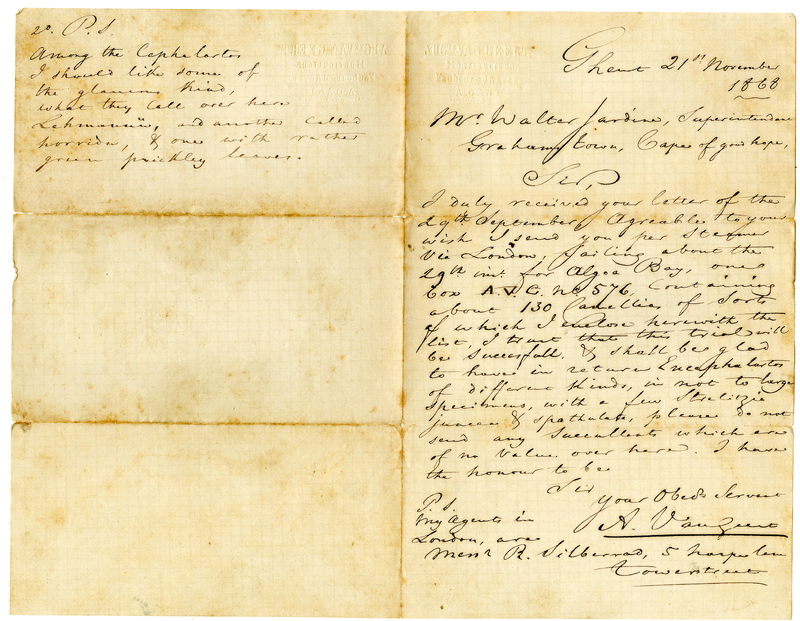 Ghent 21st November
1868
Mr. Walter Jardine, Superintendent
Grahamstown, Cape of good hope,
Sir,
I duly received your letter of the
29th September, Agreable to your
wish I send you per Steamer
Via London, Sailing about the
29th int. for Algoa Bay, one
box A.V.G. No. 576, Containing
about 130 Camellias of Sorts
of which I enclose herewith the
list, I trust that this trial will
be Succesfull, & shall be glad
to have in return Encephalartos
of different Kinds, in not to large
Specimens, with a few Strelitzia
juncea & spathulata, please do not
send any Succullents which are
of no Value over here. I have
the honour to be
Sir
your Obedt Servent
A. Van Geert
P.S.
My Agents in
London, are
Messrs R. Silberrad, 5 harp lane
Towerstreet
2o. P.S.
Among the Cephalartos
I should like some of
the glaucus Kind,
what they Call over here
Lehmannii, and another Called
horrida, & one with rather
green prickley leaves.